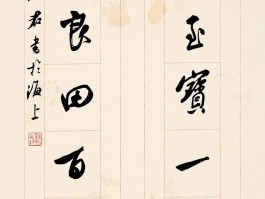 至寶一
良田百
右書於海上